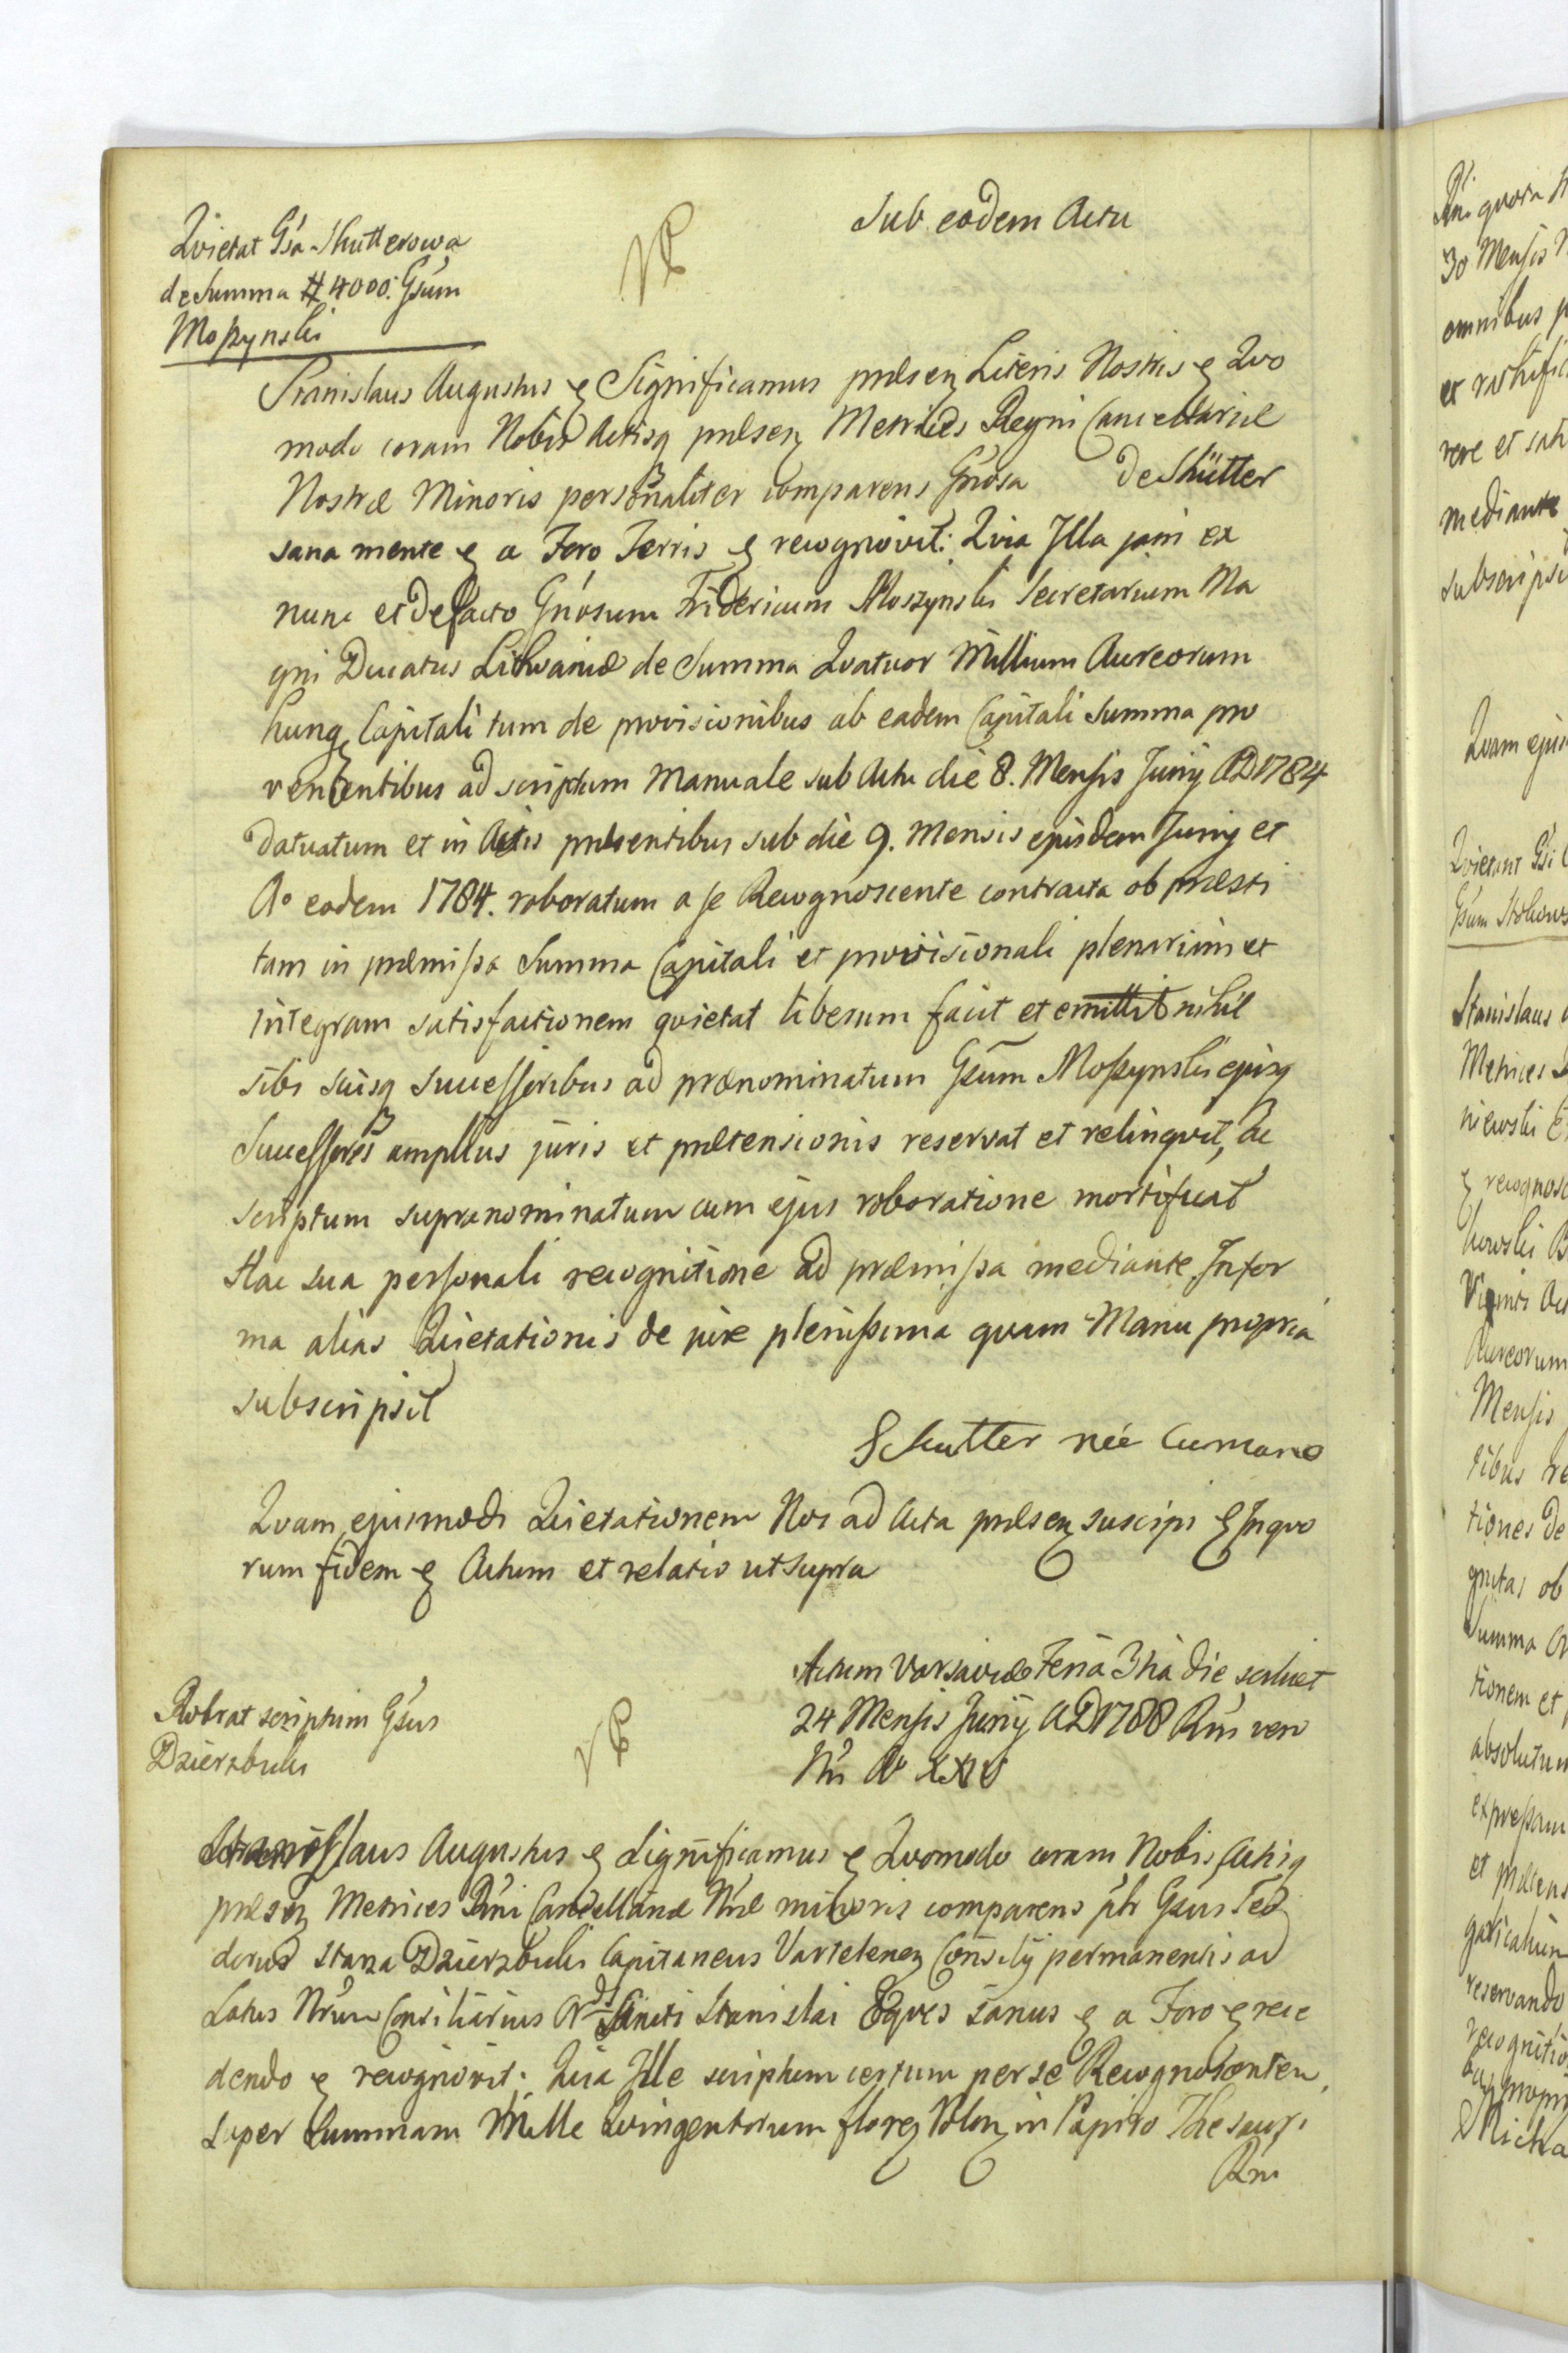 Sub eodem Actu
Qvietat Gsa Shutterowa
de Summa # 4000. Gsum
Moszynski
Stanislaus Augustus & Significamus præsen Literis Nostris & Qvo
modo coram Nobis Actisq præsen Metrices Regni Cancellariæ
Nostræ Minoris personaliter comparens Gnosa de Shütter
sana mente & a Foro Terris & recognovit: Qvia Illa jam ex
nunc et de facto Gnosum Fridericum Moszynski Secretarium Ma
gni Ducatus Lithvaniæ de Summa Qvatuor Millium Aureorum
hung Capitali tum de provisionibus ab eadem Capitali Summa pro
venientibus ad scriptum Manuale sub Actu die 8. Mensis Junij AD 1784
datuatum et in Actis præsentibus sub die 9. Mensis ejusdem Junij et
Ao eodem 1784. roboratum a se Recognoscente contracta ob præsti
tam in præmissa Summa Capitali et provisionali plenariam et
integram satisfactionem qvietat liberum facit et emittit nihil
sibi suisq successoribus ad prænominatum Gsum Moszynski ejusq
Successores amplius juris et prætensionis reservat et relinqvit, Ac
scriptum supranominatum cum ejus roboratione mortificat
Hac sua personali recognitione ad præmissa mediante, In for
ma alias Qvietationis de jure plenissima qvam Manu propria
subscripsit
Schutter née Cumano
Qvam ejusmodi Qvietationem Nos ad Acta præsen suscipi & In qvo
rum fidem & Actum et relatio ut supra
Actum Varsaviæ Feria 3tia die scilicet
24 Mensis Junij AD 1788 Rni vero
Nri Ao XXIV
Roborat scriptum Gsus
Dzierzbicki
Stanislaus Augustus & Significamus & Qvomodo coram Nobis, Actisq
præsen Metrices Rni Cancellariæ Nræ minoris comparens pltr Gsus Teo
dorus Stara Dzierzbicki Capitaneus Vartelenen Consilij permanentis ad
Latus Nrum Consiliarius Ordis Sancti Stanislai Eqves sanus & a Foro & rece
dendo & recognovit: Qvia Ille scriptum certum per se Recognoscentem
super Summam Mille Qvingentorum floren Polon in Papiro Thesauri
Rni